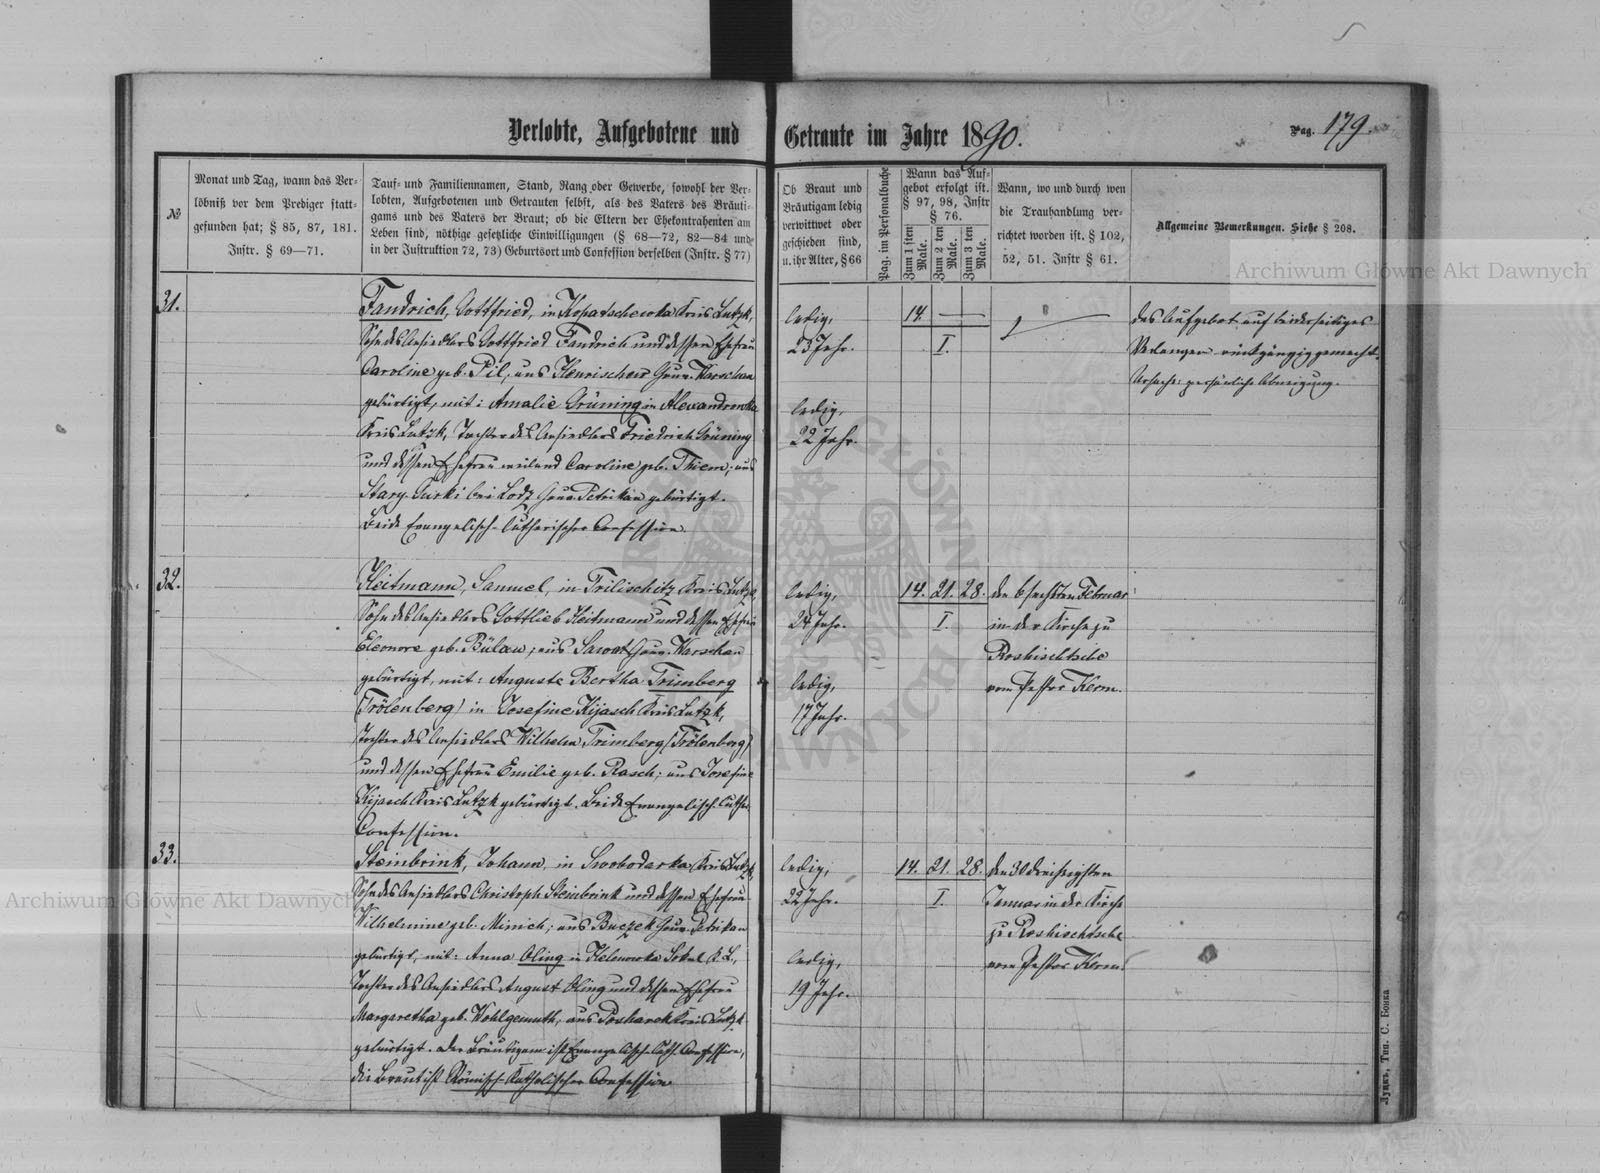 Verlobte, Aufgebotene und Getraute im Jahre 1890.
Pag. 179.
№
Monat und Tag, wann das Ver-
löbniß vor dem Prediger statt-
gefunden hat; § 85, 87, 181.
Instr. § 69—71.
Tauf- und Familiennamen, Stand, Rang oder Gewerbe, sowohl der Ver-
lobten, Aufgebotenen und Getrauten selbst, als des Vaters des Bräuti-
gams und des Vaters der Braut; ob die Eltern der Ehekontrahenten am
Leben sind, nöthige gesetzliche Einwilligungen (§ 68—72, 82—84 und
in der Instruktion 72, 73) Geburtsort und Confession derselben (Instr. § 77)
Ob Braut und
Bräutigam ledig
verwittwet oder
geschieden sind,
u. ihr Alter, § 66
Pag. im Personalbuche
Wann das Auf-
gebot erfolgt ist.
§ 97, 98, Instr
§ 76.
Zum 1 sten Male.
Zum 2 ten Male.
Zum 3 ten Male.
Wann, wo und durch wen
die Trauhandlung ver-
richtet worden ist. § 102,
52, 51. Instr § 61.
Allgemeine Bemerkungen. Siehe § 208.
Archiwum Główne Akt Dawnych
31.
Fandrich, Gottfried, in Kopatschewka Kreis Lutzk,
Sohn des Ansiedlers Gottfried Fandrich und dessen Ehefrau
Caroline geb. Pil, aus Gouv. Warschau
gebürtigt, mit: Amalie Grüning in Alexandrowka
Kreis Lutzk, Tochter des Ansiedlers Friedrich Grüning
und dessen Ehefrau weiland Caroline geb. Thiem; aus
Stary-Gurki bei Lodz Gouv. Petrikau gebürtigt.
Beide Evangelisch-lutherischer Confession.
ledig,
23 Jahr.
ledig,
22 Jahr.
14. —
I.
Das Aufgebot auf beiderseitiges
Verlangen rückgängig gemacht.
Ursache: persönliche Abneigung.
32.
Heitmann, Samuel, in Trilischitz Kreis Lutzk,
Sohn des Ansiedlers Gottlieb Heitmann und dessen Ehefrau
Eleonore geb. Bülau; aus Gouv. Warschau
gebürtigt, mit: Auguste Bertha Trimberg
(Trölenberg) in Josefine Kijasch Kreis Lutzk,
Tochter des Ansiedlers Wilhelm Trimberg (Trölenberg)
und dessen Ehefrau Emilie geb. Rasch; aus Josefine
Kijasch Kreis Lutzk gebürtigt. Beide Evangelisch-luther.
Confession.
ledig,
24 Jahr.
ledig,
17 Jahr.
14. 21. 28.
I.
den 6 sechsten Februar
in der Kirche zu
Roshischtsche
vom Pastor Kerm.
33.
Steinbrink, Johann, in Swobodarka Kreis Lutzk,
Sohn des Ansiedlers Christoph Steinbrink und dessen Ehefrau
Wilhelmine geb. Minich; aus Buczek Gouv. Petrikau
gebürtigt, mit: Anna Oling in Helenowka Sokul K. L.,
Tochter des Ansiedlers August Oling und dessen Ehefrau
Margaretha geb. Wohlgemuth, aus Kreis Lutzk
gebürtigt. Der Bräutigam ist Evangelisch-Luth. Confession,
die Braut ist Römisch-Katholischer Confession.
ledig,
22 Jahr.
ledig,
19 Jahr.
14. 21. 28.
I.
den 30 dreißigsten
Januar in der Kirche
zu Roshischtsche
vom Pastor Kerm.
Archiwum Główne Akt Dawnych
Луцкъ, Тип. С. Бонка